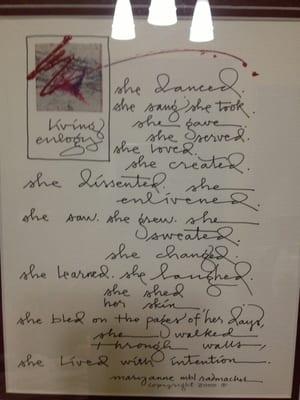 living
eulogy
she danced.
she sang. she took.
she gave.
she served.
she loved.
she created.
she dissented. she
enlivened.
she saw. she grew. she
sweated.
she changed.
she learned. she laughed.
she shed
her skin.
she bled on the pages of her days,
she walked
through walls,
she lived with intention.
mary anne mbl radmacher
copyright 2000 ©